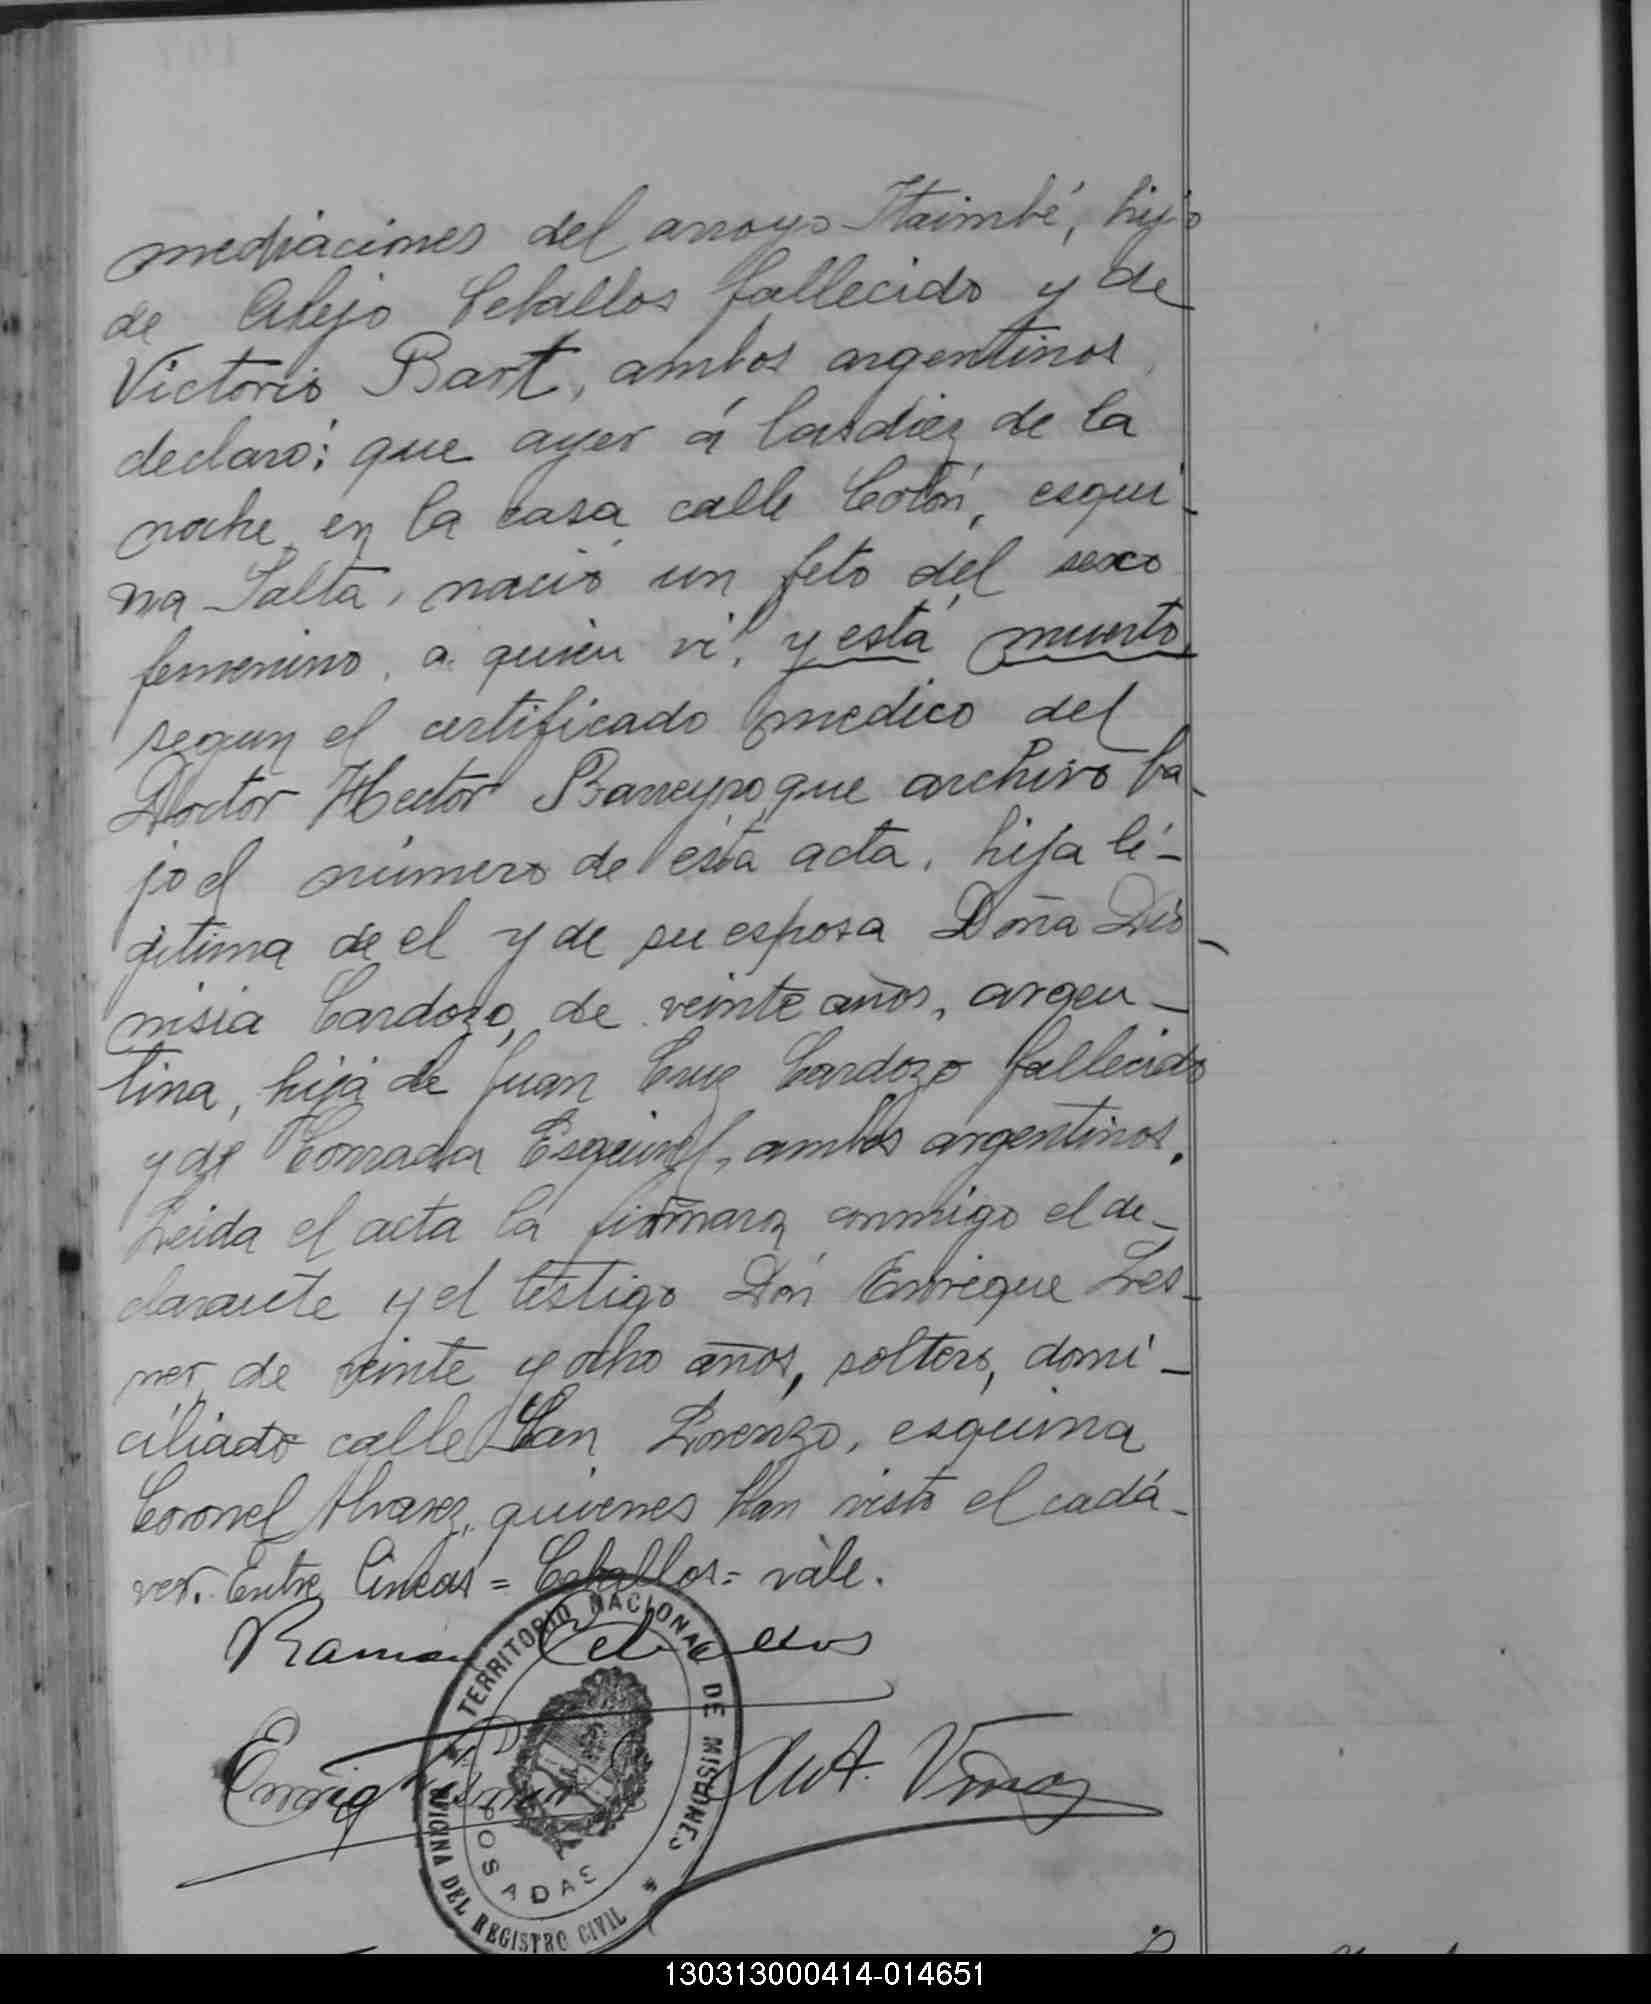 mediaciones del arroyo Itaimbé, hijo
de Alejo Ceballos fallecido y de
Victoria Bart, ambos argentinos,
declaró: que ayer á las diez de la
noche en la casa calle Colón, esqui-
na Salta, nació un feto del sexo
femenino, a quien ví, y está muerto,
segun el certificado medico del
Doctor Hector Barreyro, que archivo ba-
jo el número de ésta acta, hija le-
gitima de el y de su esposa Doña Dio-
nisia Cardozo, de veinte años, argen-
tina, hija de Juan Cruz Cardozo fallecido
y de Conrada Esquivel, ambos argentinos.
Leida el acta la firmaron conmigo el de-
clarante y el testigo Don Enrique Les-
ner, de veinte y ocho años, soltero, domi-
ciliado calle San Lorenzo, esquina
Coronel Alvarez, quienes han visto el cadá-
ver. Entre lineas = Ceballos = vale.
Ramón Ceballos
TERRITORIO NACIONAL DE MISIONES
OFICINA DEL REGISTRO CIVIL
POSADAS
130313000414-014651